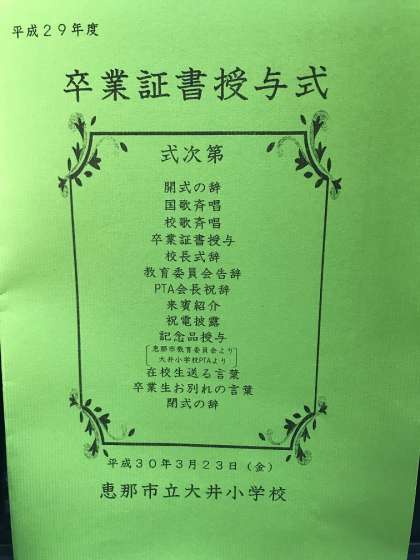 平成２９年度
卒業証書授与式
式次第
開式の辞
国歌斉唱
校歌斉唱
卒業証書授与
校長式辞
教育委員会告辞
PTA会長祝辞
来賓紹介
祝電披露
記念品授与
恵那市教育委員会より
大井小学校PTAより
在校生送る言葉
卒業生お別れの言葉
閉式の辞
平成３０年３月２３日（金）
恵那市立大井小学校